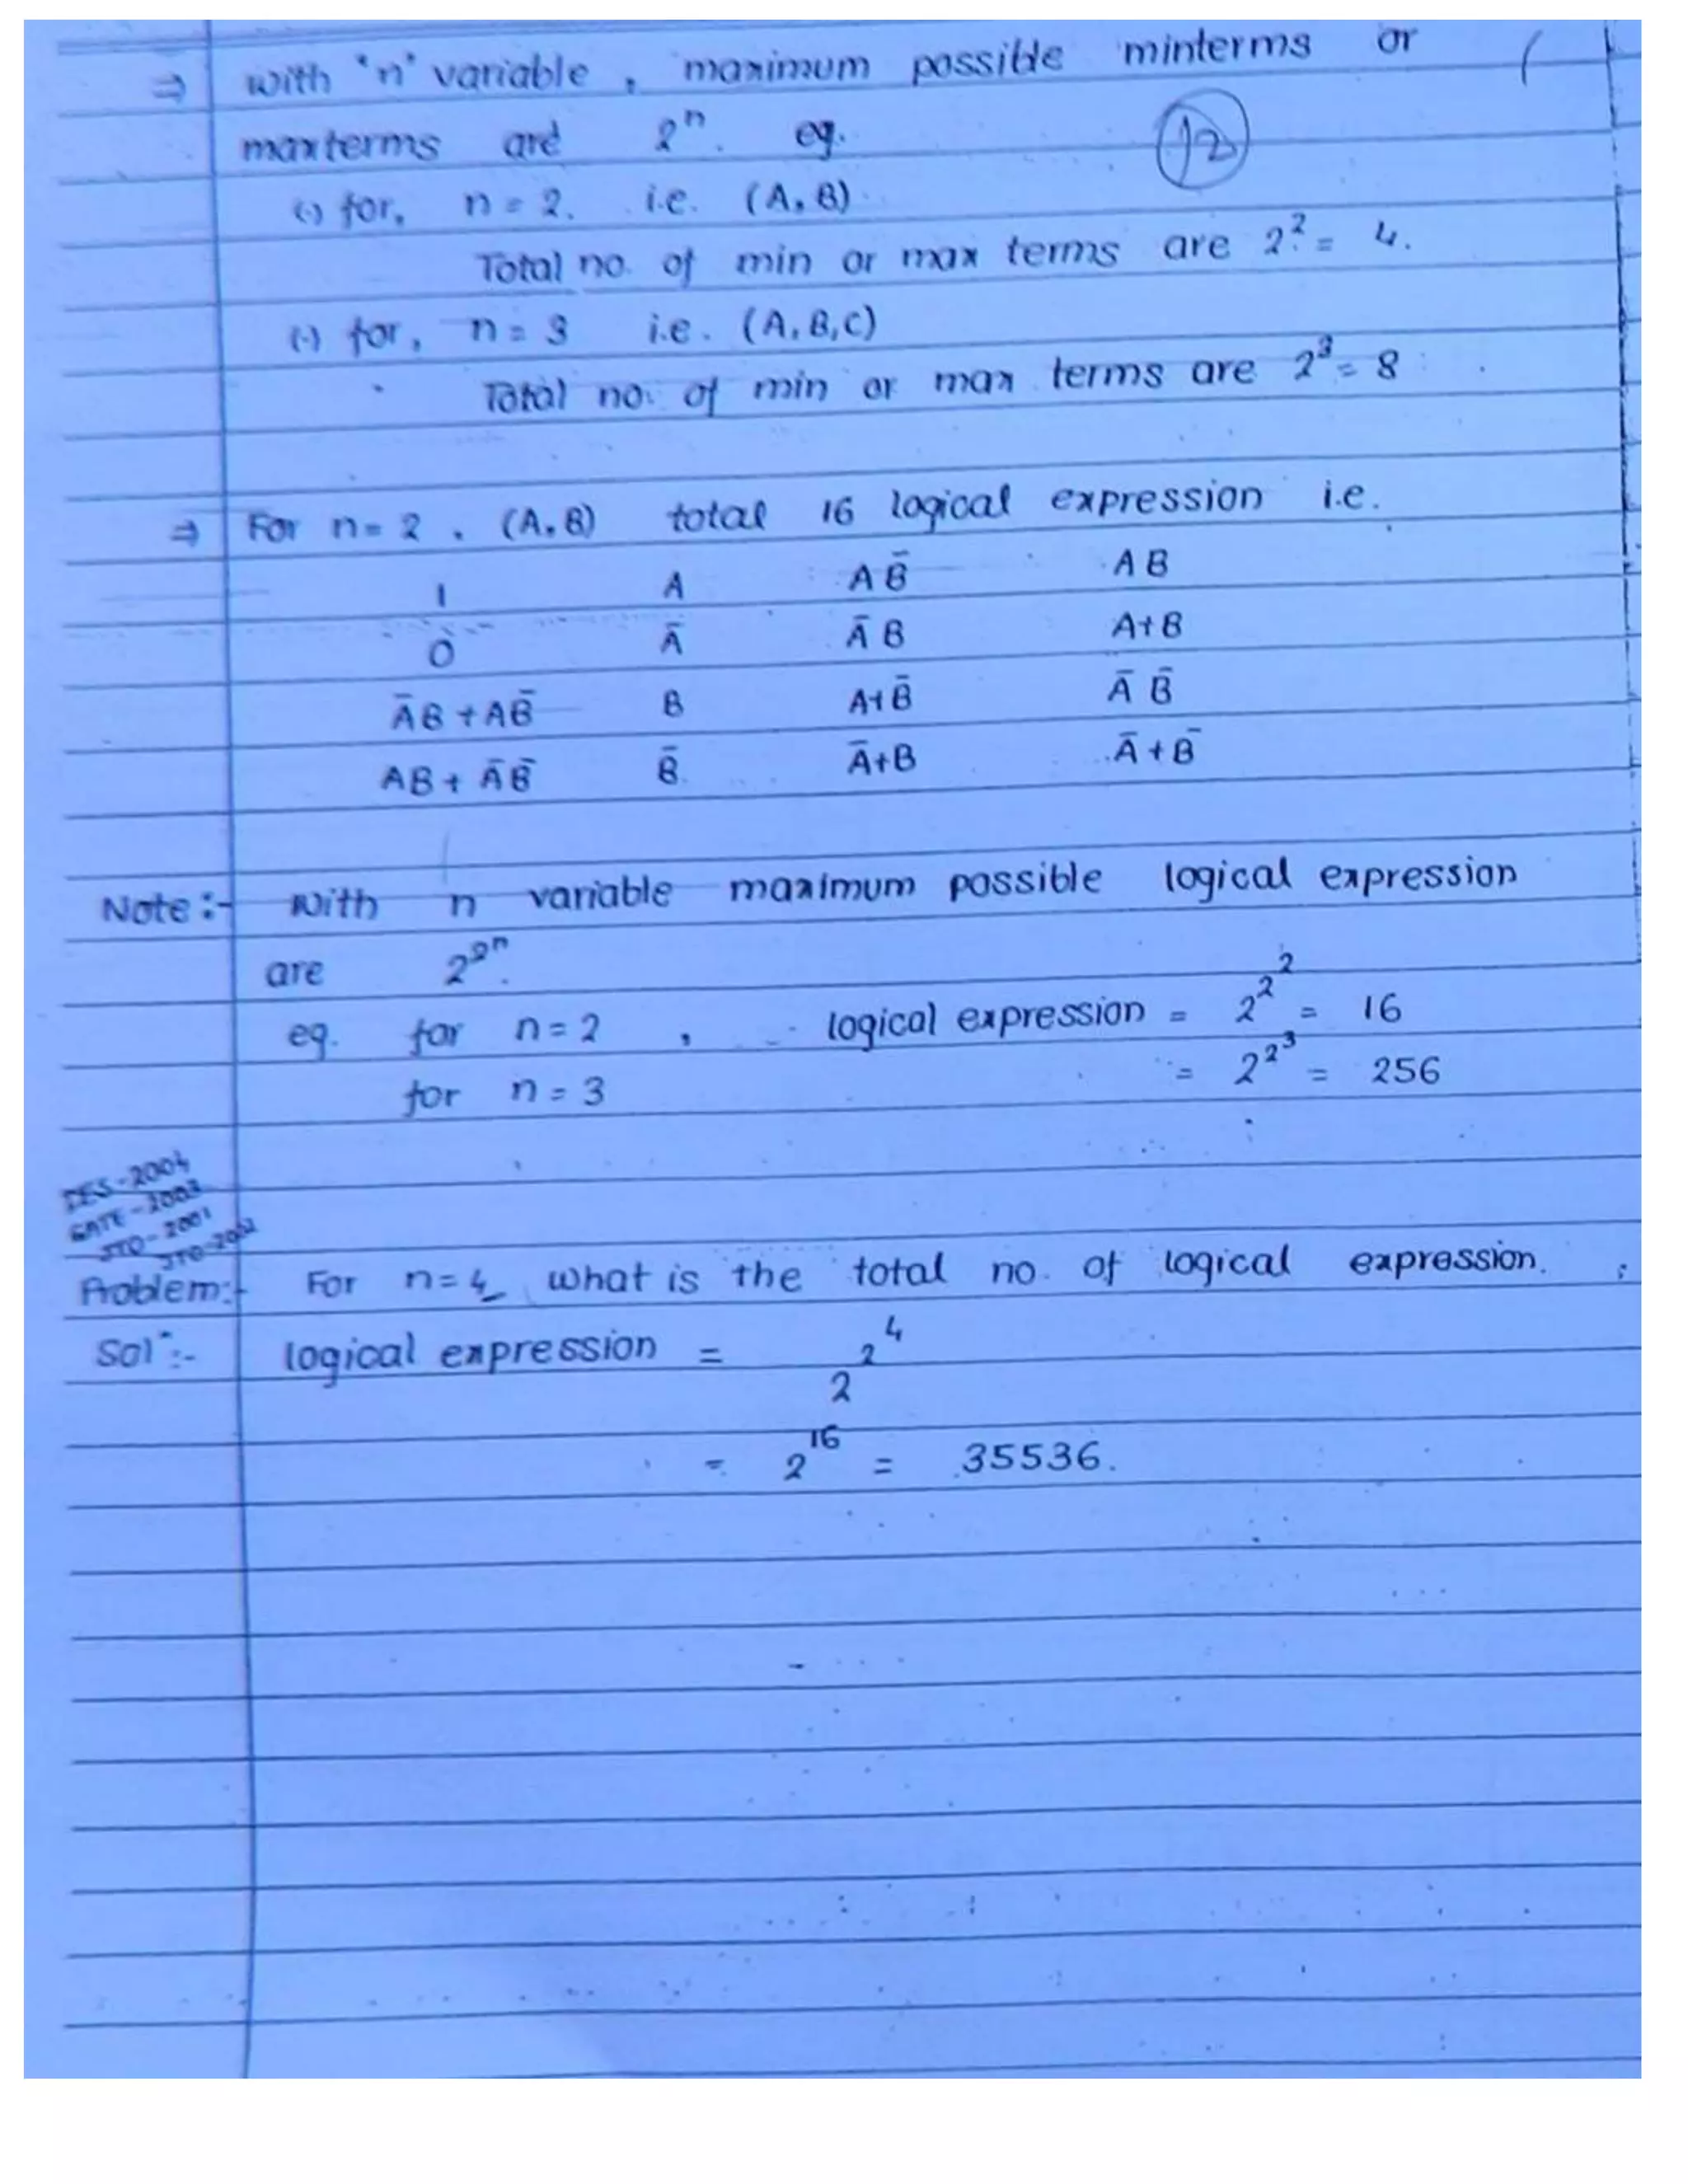 ⇒ with 'n' variable, maximum possible minterms or (
maxterms are 2ⁿ. eg. 12
(-) for, n = 2. i.e. (A, B)
Total no. of min or max terms are 2² = 4.
(-) for, n = 3 i.e. (A, B, C)
Total no. of min or max terms are 2³ = 8
⇒ For n = 2, (A, B) total 16 logical expression i.e.
1 A AB̄ AB
0 Ā ĀB A+B
ĀB + AB̄ B A+B̄ Ā B̄
AB + ĀB̄ B̄ Ā+B Ā + B̄
Note:- with n variable maximum possible logical expression
are 2^2^n.
eg. for n = 2, logical expression = 2^2^2 = 16
for n = 3 = 2^2^3 = 256
IES-2004
GATE-2003
JTO-2001
JTO-2002
Problem:- For n = 4 what is the total no. of logical expression.
Solⁿ:- logical expression = 2^2^4
= 2^16 = 35536.